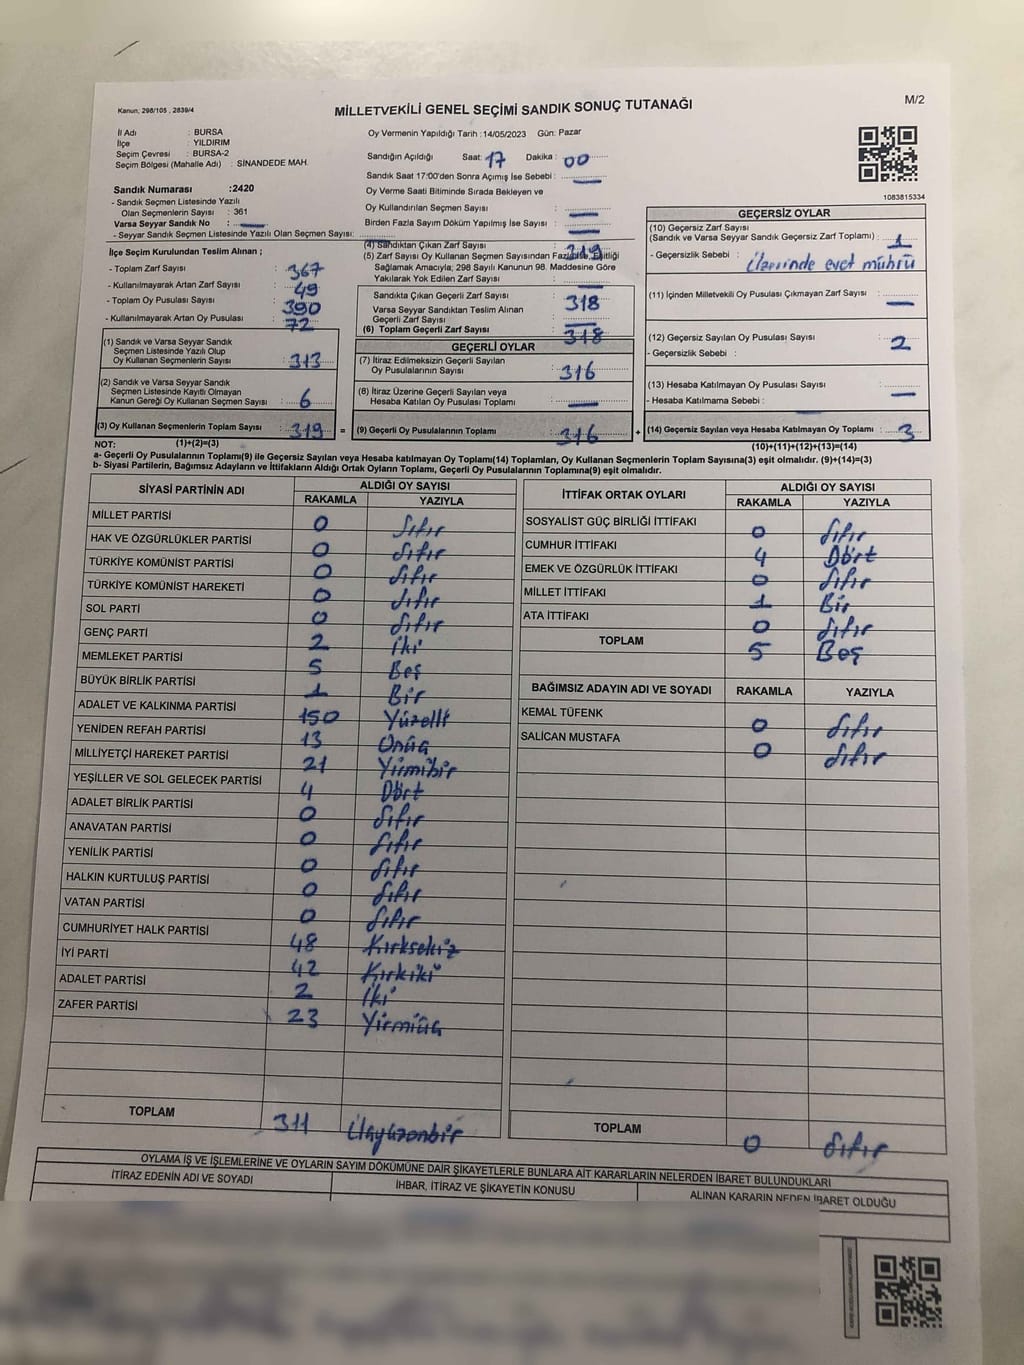 Kanun, 298/105 , 2839/4
MİLLETVEKİLİ GENEL SEÇİMİ SANDIK SONUÇ TUTANAĞI
M/2
İl Adı : BURSA
İlçe : YILDIRIM
Seçim Çevresi : BURSA-2
Seçim Bölgesi (Mahalle Adı) : SİNANDEDE MAH.
Sandık Numarası :2420
- Sandık Seçmen Listesinde Yazılı
Olan Seçmenlerin Sayısı : 361
Varsa Seyyar Sandık No : —
- Seyyar Sandık Seçmen Listesinde Yazılı Olan Seçmen Sayısı:
Oy Vermenin Yapıldığı Tarih :14/05/2023 Gün: Pazar
Sandığın Açıldığı Saat: 17 Dakika : 00
Sandık Saat 17:00'den Sonra Açımış İse Sebebi : —
Oy Verme Saati Bitiminde Sırada Bekleyen ve
Oy Kullandırılan Seçmen Sayısı : —
Birden Fazla Sayım Döküm Yapılmış İse Sayısı : —
1083815334
İlçe Seçim Kurulundan Teslim Alınan ;
- Toplam Zarf Sayısı : 367
- Kullanılmayarak Artan Zarf Sayısı : 49
- Toplam Oy Pusulası Sayısı : 390
- Kullanılmayarak Artan Oy Pusulası : 72
(1) Sandık ve Varsa Seyyar Sandık
Seçmen Listesinde Yazılı Olup
Oy Kullanan Seçmenlerin Sayısı : 313
(2) Sandık ve Varsa Seyyar Sandık
Seçmen Listesinde Kayıtlı Olmayan
Kanun Gereği Oy Kullanan Seçmen Sayısı : 6
(3) Oy Kullanan Seçmenlerin Toplam Sayısı : 319 =
(4) Sandıktan Çıkan Zarf Sayısı : 319
(5) Zarf Sayısı Oy Kullanan Seçmen Sayısından Fazla İse, Eşitliği
Sağlamak Amacıyla, 298 Sayılı Kanunun 98. Maddesine Göre
Yakılarak Yok Edilen Zarf Sayısı : —
Sandıkta Çıkan Geçerli Zarf Sayısı : 318
Varsa Seyyar Sandıktan Teslim Alınan
Geçerli Zarf Sayısı : —
(6) Toplam Geçerli Zarf Sayısı : 318
GEÇERLİ OYLAR
(7) İtiraz Edilmeksizin Geçerli Sayılan
Oy Pusulalarının Sayısı : 316
(8) İtiraz Üzerine Geçerli Sayılan veya
Hesaba Katılan Oy Pusulası Toplamı : —
(9) Geçerli Oy Pusulalarının Toplamı : 316 +
GEÇERSİZ OYLAR
(10) Geçersiz Zarf Sayısı
(Sandık ve Varsa Seyyar Sandık Geçersiz Zarf Toplamı) : 1
- Geçersizlik Sebebi : Üzerinde evet mührü
(11) İçinden Milletvekili Oy Pusulası Çıkmayan Zarf Sayısı : —
(12) Geçersiz Sayılan Oy Pusulası Sayısı : 2
- Geçersizlik Sebebi :
(13) Hesaba Katılmayan Oy Pusulası Sayısı : —
- Hesaba Katılmama Sebebi : —
(14) Geçersiz Sayılan veya Hesaba Katılmayan Oy Toplamı : 3
NOT: (1)+(2)=(3) (10)+(11)+(12)+(13)=(14)
a- Geçerli Oy Pusulalarının Toplamı(9) ile Geçersiz Sayılan veya Hesaba Katılmayan Oy Toplamı(14) Toplamları, Oy Kullanan Seçmenlerin Toplam Sayısına(3) eşit olmalıdır. (9)+(14)=(3)
b- Siyasi Partilerin, Bağımsız Adayların ve İttifakların Aldığı Ortak Oyların Toplamı, Geçerli Oy Pusulalarının Toplamına(9) eşit olmalıdır.
SİYASİ PARTİNİN ADI ALDIĞI OY SAYISI
RAKAMLA YAZIYLA
MİLLET PARTİSİ 0 Sıfır
HAK VE ÖZGÜRLÜKLER PARTİSİ 0 Sıfır
TÜRKİYE KOMÜNİST PARTİSİ 0 Sıfır
TÜRKİYE KOMÜNİST HAREKETİ 0 Sıfır
SOL PARTİ 0 Sıfır
GENÇ PARTİ 2 İki
MEMLEKET PARTİSİ 5 Beş
BÜYÜK BİRLİK PARTİSİ 1 Bir
ADALET VE KALKINMA PARTİSİ 150 Yüzelli
YENİDEN REFAH PARTİSİ 13 Onüç
MİLLİYETÇİ HAREKET PARTİSİ 21 Yirmibir
YEŞİLLER VE SOL GELECEK PARTİSİ 4 Dört
ADALET BİRLİK PARTİSİ 0 Sıfır
ANAVATAN PARTİSİ 0 Sıfır
YENİLİK PARTİSİ 0 Sıfır
HALKIN KURTULUŞ PARTİSİ 0 Sıfır
VATAN PARTİSİ 0 Sıfır
CUMHURİYET HALK PARTİSİ 48 Kırksekiz
İYİ PARTİ 42 Kırkiki
ADALET PARTİSİ 2 İki
ZAFER PARTİSİ 23 Yirmiüç
TOPLAM 311 Üçyüzonbir
İTTİFAK ORTAK OYLARI ALDIĞI OY SAYISI
RAKAMLA YAZIYLA
SOSYALİST GÜÇ BİRLİĞİ İTTİFAKI 0 Sıfır
CUMHUR İTTİFAKI 4 Dört
EMEK VE ÖZGÜRLÜK İTTİFAKI 0 Sıfır
MİLLET İTTİFAKI 1 Bir
ATA İTTİFAKI 0 Sıfır
TOPLAM 5 Beş
BAĞIMSIZ ADAYIN ADI VE SOYADI RAKAMLA YAZIYLA
KEMAL TÜFENK 0 Sıfır
SALİCAN MUSTAFA 0 Sıfır
TOPLAM 0 Sıfır
OYLAMA İŞ VE İŞLEMLERİNE VE OYLARIN SAYIM DÖKÜMÜNE DAİR ŞİKAYETLERLE BUNLARA AİT KARARLARIN NELERDEN İBARET BULUNDUKLARI
İTİRAZ EDENİN ADI VE SOYADI İHBAR, İTİRAZ VE ŞİKAYETİN KONUSU ALINAN KARARIN NEDEN İBARET OLDUĞU